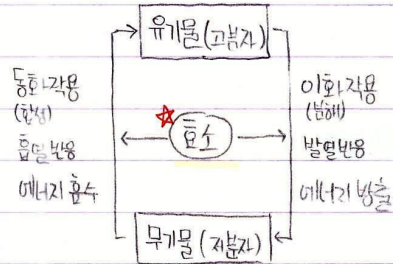 유기물(고분자)
동화작용
(합성)
흡열반응
에너지 흡수
효소
이화작용
(분해)
발열반응
에너지 방출
무기물(저분자)